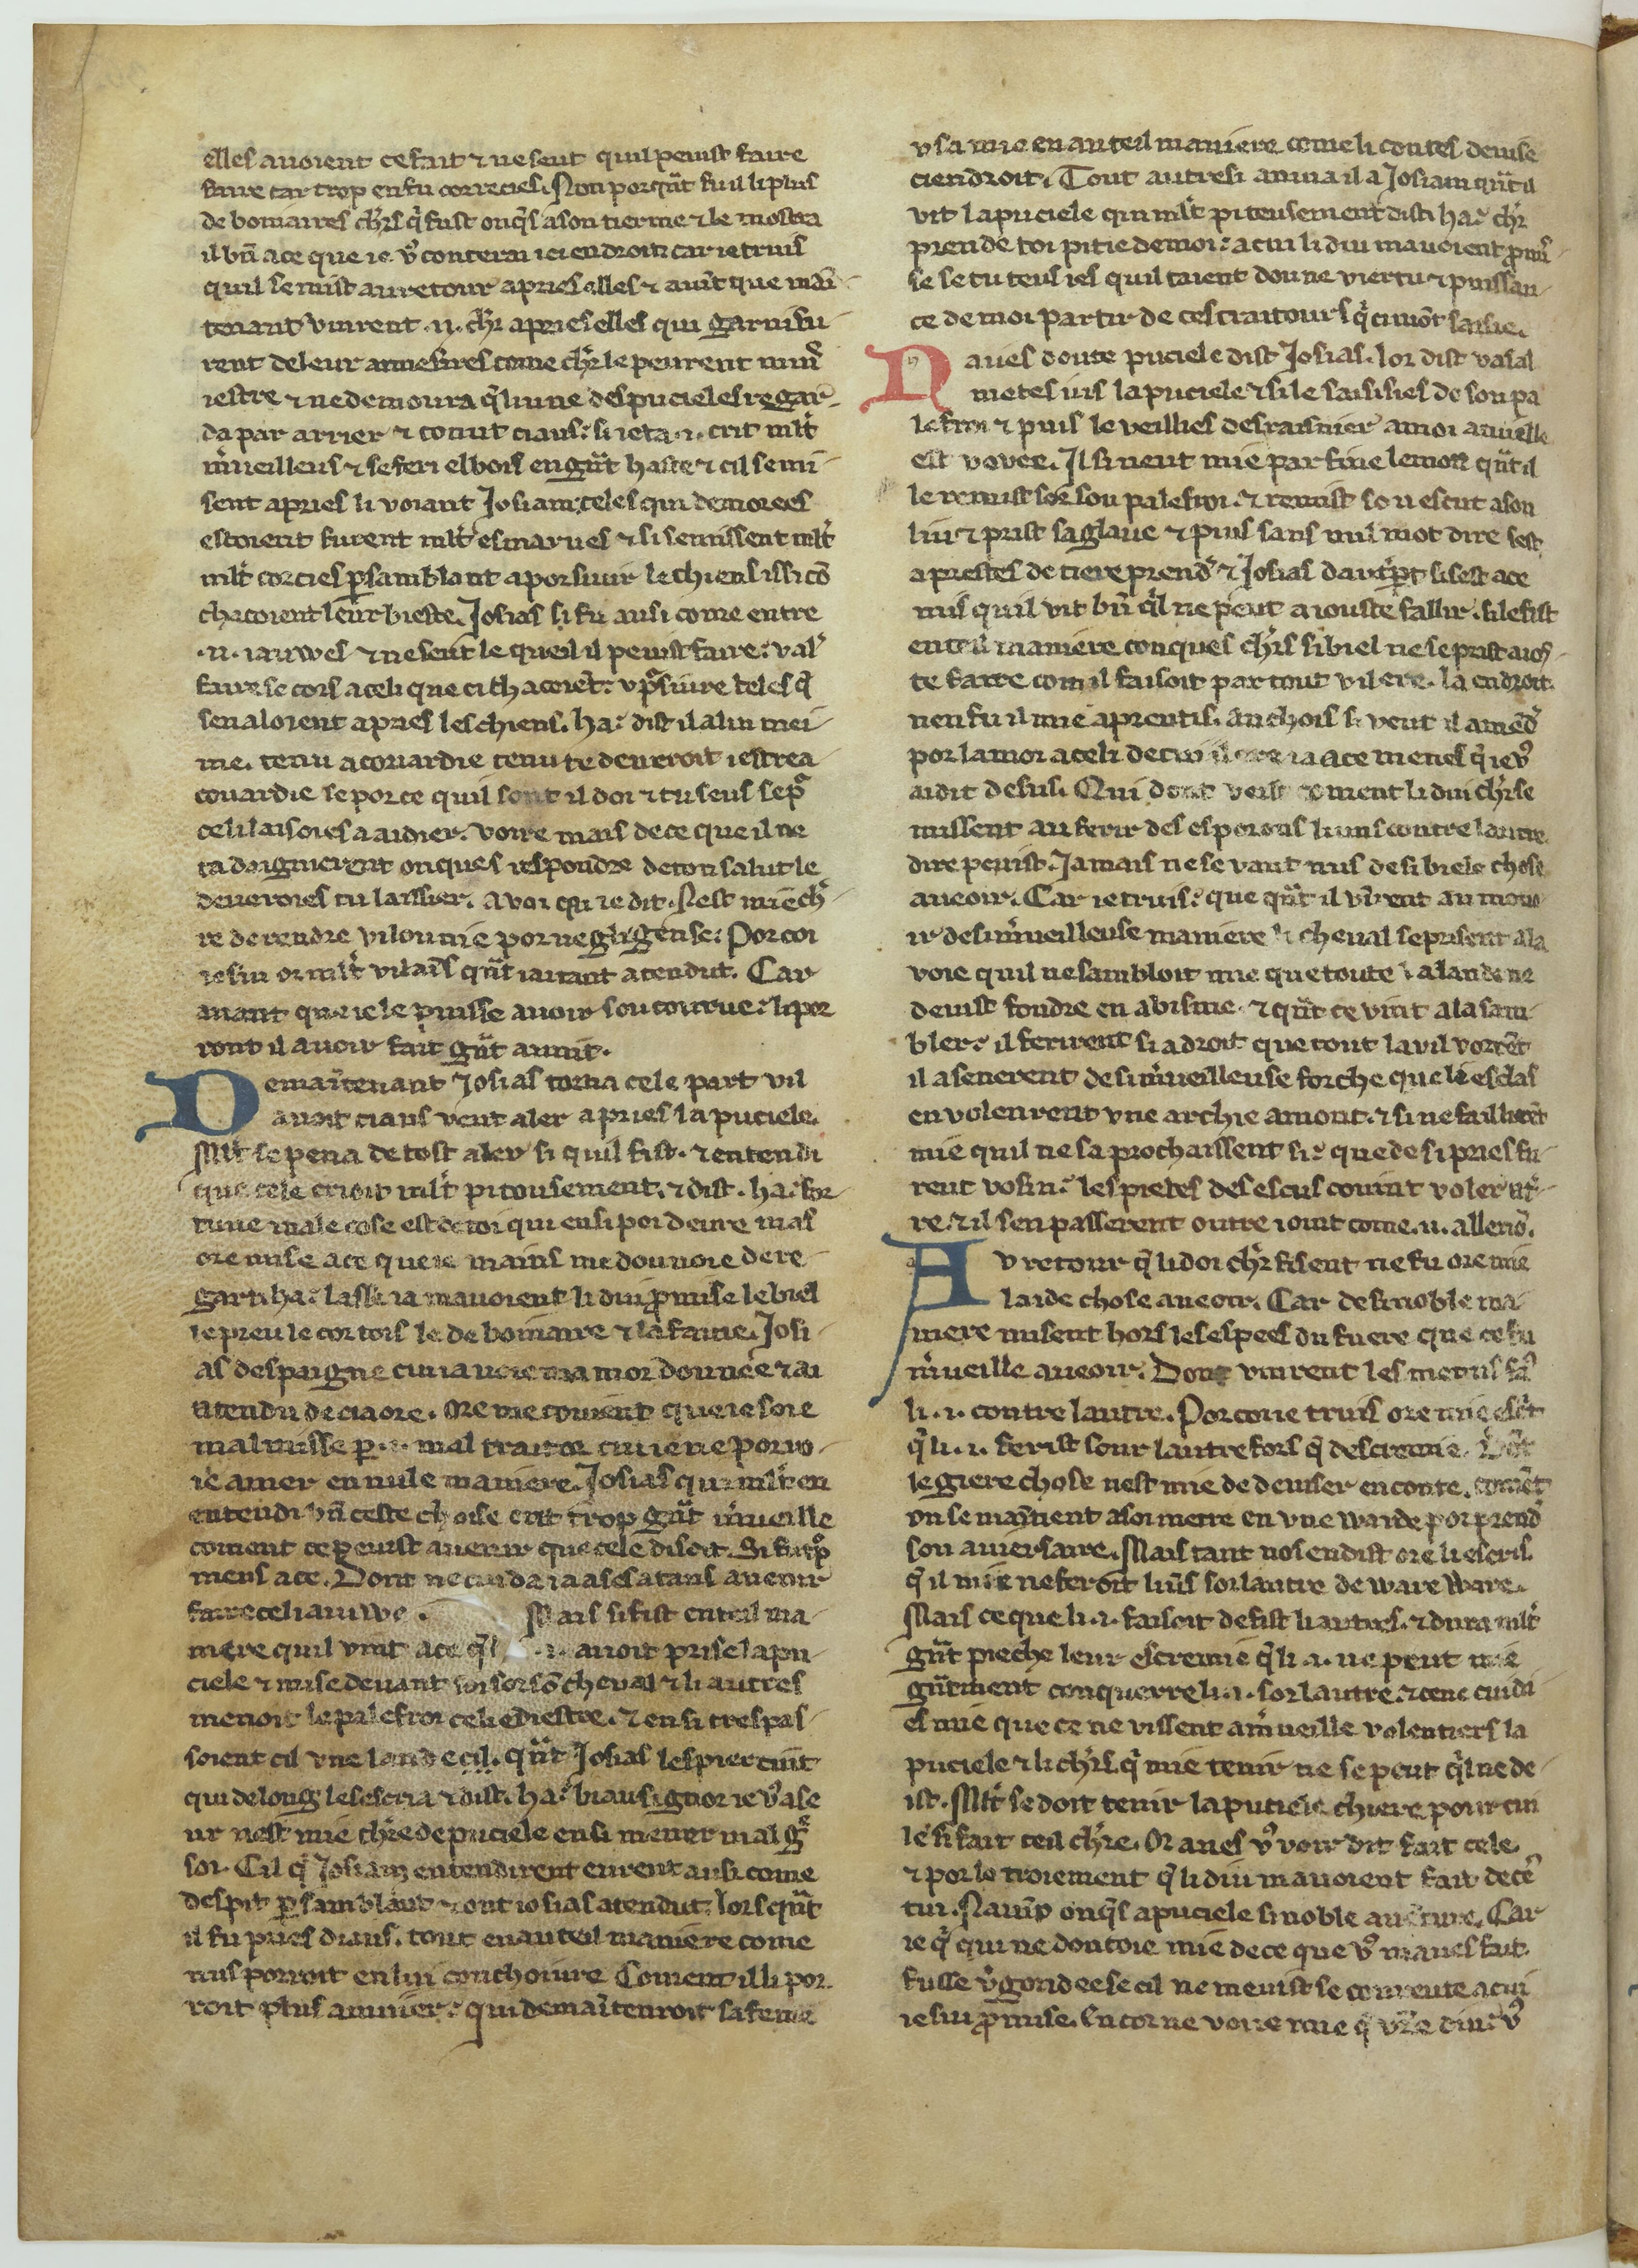 elles auoient ce fait ⁊ ne seut quil peuist faire
faire car trop en fu correcies. Non porqu̅t fu il li plus
de bonaires chrs q̓ fust onq̓s a son tierme ⁊ le mostra
il bn̅ a ce que ie vꝰ conterai ici endroit: car ie truis
quil se mist au retour apries elles ⁊ auint que main
tenant vinrent .ij. chr̓ apries elles qui garni fu
rent de leur armeures come chr̓ le peurent miu̓s
iestre ⁊ ne demoura q̓ li une des pucieles regar
da par arrier ⁊ conut ciaus: si ieta .i. crit ml̓t
m̓ueilleus ⁊ se feri el bois en gn̅t haste ⁊ cil se mi
sent apries li voiant Josiam: celes qui demorees
estoient furent ml̓t esmarues ⁊ si semissent ml̓t
ml̓t corcies ꝑ samblant a porsiuir le chiens issi co̅
chacoient leur bieste. Josias si fu ausi come entre
.ij. iauwes ⁊ ne seut le queil il peuist faire: u al̓
faire secors a celi que cil chacoie̅t: v p̓siure celes q̓
sen aloient apries les chiens. ha: dist il a lui mei
me. tenu a couardie tenu te deueroit iestre a
couardie se por ce quil sont il doi ⁊ tu seus se p̓
celi laisoies a aidier. voire mais de ce que il ne
ta daignierent onques respondre de ton salut le
deueroies tu laissier. Avoi qui ie dit. Nest mie ch̓
re de rendre vilounie por negligense: Por coi
ie sui or ml̓t vilains qu̅t iai tant atendut. Car
auant que ie le puisse auoir soucorrue: li por
ront il auoir fait gn̅t anuit.
Demaintenant Josias torna cele part v il
auoit ciaus veut aler apries la puciele.
Ml̓t se pena de tost aler si quil fist. ⁊ entendi
que cele crioit ml̓t pitousement. ⁊ dist. ha: for
tune male cose est de toi qui ensi poi deure mas
ore mise a ce que ie mains me dounoie de re
gart. ha: lasse ia mauoient li diu ꝓmise le biel
le preu le cortois le de bonaire ⁊ la fame. Josi
as despaigne cui iauoie mamor dounee ⁊ ai
atendu de ci a ore. Ore me couient que ie soie
malmisse ꝑ .i. mal traitor cui ie ne poruo
ie amer en nule maniere. Josias qui ml̓t en
entendi bn̅ ceste chose eut trop gn̅t m̓ueille
coment ce peuist auenir que cele disoit. Si fu trop
mens a ce. Dont ne cuida ia a ses atans auenir
faire celi aiuwe. Mais si fist en teil ma
niere quil vint a ce q̓ li .i. auoit prise la pu
ciele ⁊ mise deuant soi sor so̅ cheual ⁊ li autres
menoit le palefroi celi e diestre. ⁊ ensi trespas
soient cil vne lande cil. qu̅t Josias les piercuit
qui de long les escria ⁊ dist. ha: biau signor ie vꝰ ase
ur nest mie chr̓e de puciele ensi mener mal gr̓
sor. Cil q̓ Josiam entendirent eurent ausi come
despit ꝑ samblant ⁊ ont iosias atendut. lors qu̅t
il fu pries diaus. tout en auteil maniere come
nus porroit en lui conchoiure Coment il li por
roit plus anuier: qui demaintenroit sa feme
v sa mie en auteil maniere come li contes deuise
ci endroit. Tout autresi anuia il a Josiam qu̅t il
vit la puciele qui ml̓t piteusement dist: ha: chr̓
prende toi pitie de moi: a cui li diu mauoient ꝓmi
se se tu teus ies quil taient doune viertu ⁊ puissan
ce de moi partir de ces traitours q̓ ci mo̅t saisie.
Naues doute puciele dist Josias. lor dist vasal
metes ius la puciele ⁊ si le saisisies de son pa
lefroi ⁊ puis le veillies desraisnier a moi a cui elle
est vovee. Il si neut mie par fine lemot qu̅t il
le remist sor son palefroi. ⁊ remist son escut a son
liu ⁊ prist sa glaue ⁊ puis sans nul mot dire sest
aprestes de tiere prend̓ ⁊ Josias daut̓ ꝑt si sest ace
mis quil vit bn̅ q̓l ne peut a iouste fallir. si le fist
en teil maniere conques chr̓s si biel ne se prist a ious
te faire com il faisoit par tout v il ere. la endroit
nen fu il mie aprentis. anchois si veut il amed̓
por lamor a celi de cui il ere ia a ce menes q̓ ie vꝰ
ai dit desus. Qui dont veist coment li doi chr̓ se
missent au ferir des esporons li uns contre lautre
dire peuist. Jamais ne se vant nus de si biele chose
aueoir. Car ie truis: que qu̅t il vinrent au mouo
ir de si m̓ueilleuse maniere li cheual se prisent a la
voie quil ne sambloit mie que toute la lande ne
deuist fondre en abisme. ⁊ qu̅t ce vint a lasam
bler: il ferirent si a droit que tout la v il vorre̅t
il asenerent de si m̓ueilleuse forche que li esclas
en volenrent vne archie amont. ⁊ si ne faillire̅t
mie quil ne saprochaissent si: que de si pries fu
rent voisin: les pieces des escus couint voler a t̓
re. ⁊ il sen passerent outre iouit come .ij. allerio̅.
Au retour q̓ li doi chr̓ fisent ne fu ore mie
laide chose aueoir. Car de si noble ma
niere misent hors les espees du fuere que ce fu
m̓ueille aueoir. Dont vinrent les menus sa̅s
li .i. contre lautre. Por coi ne truis ore mie escr̓t
q̓ li .i. ferist sour lautre fors q̓ descremie. Do̅t
legiere chose nest mie de deuiser en conte. come̅t
on se maintient a soi metre en vne warde por prend̓
son auiersaire. Mais tant nos en dist ore li escris
q̓ il mie ne feroit lius sor lautre de ware ware.
Mais ce que li .i. faisoit defist li autres. ⁊ dura ml̓t
gn̅t pieche leur escremie q̓ li .i. ne peut mie
gn̅tment conquerre li .i. sor lautre. ⁊ cene cuidi
es mie que ce ne vissent a m̓ueille volentiers la
puciele ⁊ li chr̓s. q̓ mie tenir ne se peut q̓l ne de
ist. Ml̓t se doit tenir la puciele chiere pour cui
le si fait teil chr̓e. Or aues vꝰ voir dit fait cele.
⁊ por lo troiement q̓ li diu mauoient fait de ce̅
tui. Nauint onq̓s a puciele si noble auenture. Car
ie q̓ qui ne doutoie mie de ce que vꝰ maues fait.
fusse v̓gondeese cil ne meuist se couente a cui
ie sui ꝓmise. Encor ne voue mie q̓ vr̓e diu: vꝰ